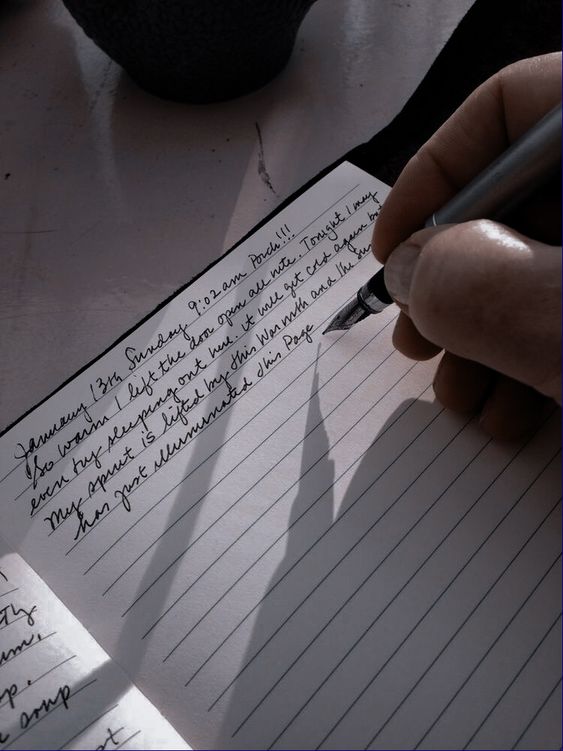 January 13th Sunday 9:02am Porch!!!
So warm I left the door open all nite. Tonight I may
even try sleeping out here. it will get cold again but
My spirit is lifted by this Warmth and the sun
has just illuminated this Page
um,
soup